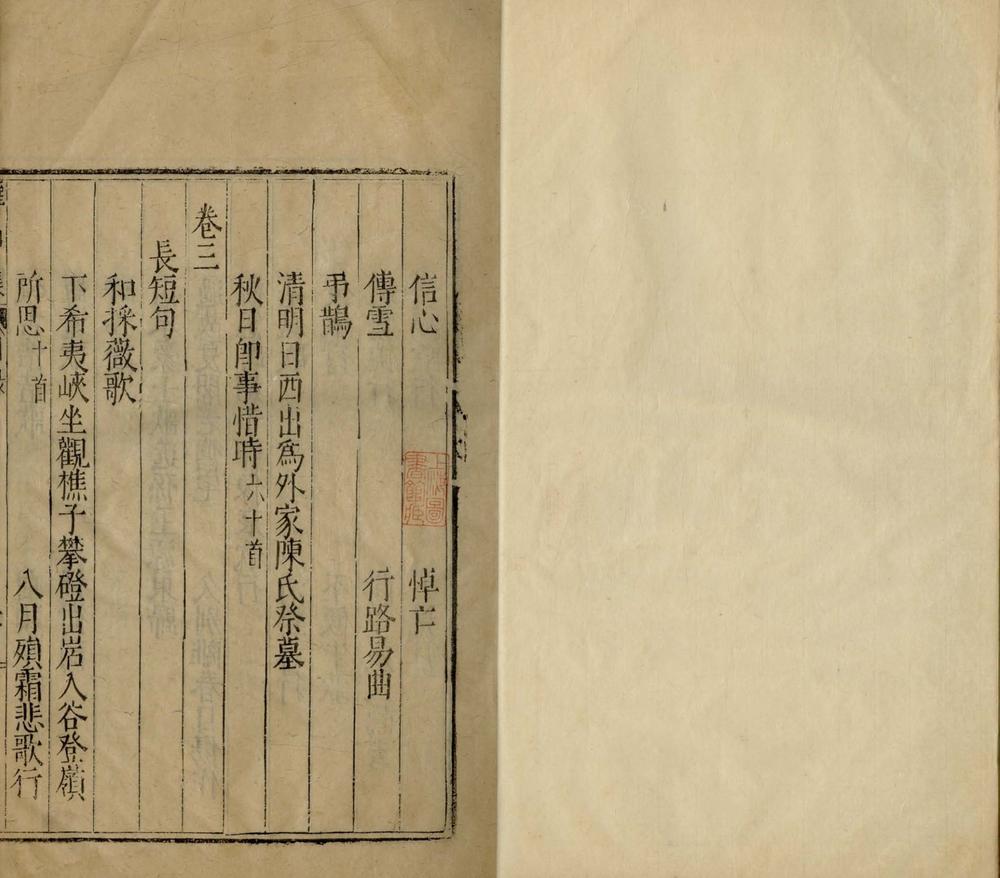 信心 悼亡
傳雪 行路易曲
弔鵲
清明日西出爲外家陳氏祭墓
秋日即事惜時六十首
卷三
長短句
和採薇歌
下希夷峽坐觀樵子攀磴出岩入谷登嶺
所思十首 八月殞霜悲歌行
上海圖書館藏